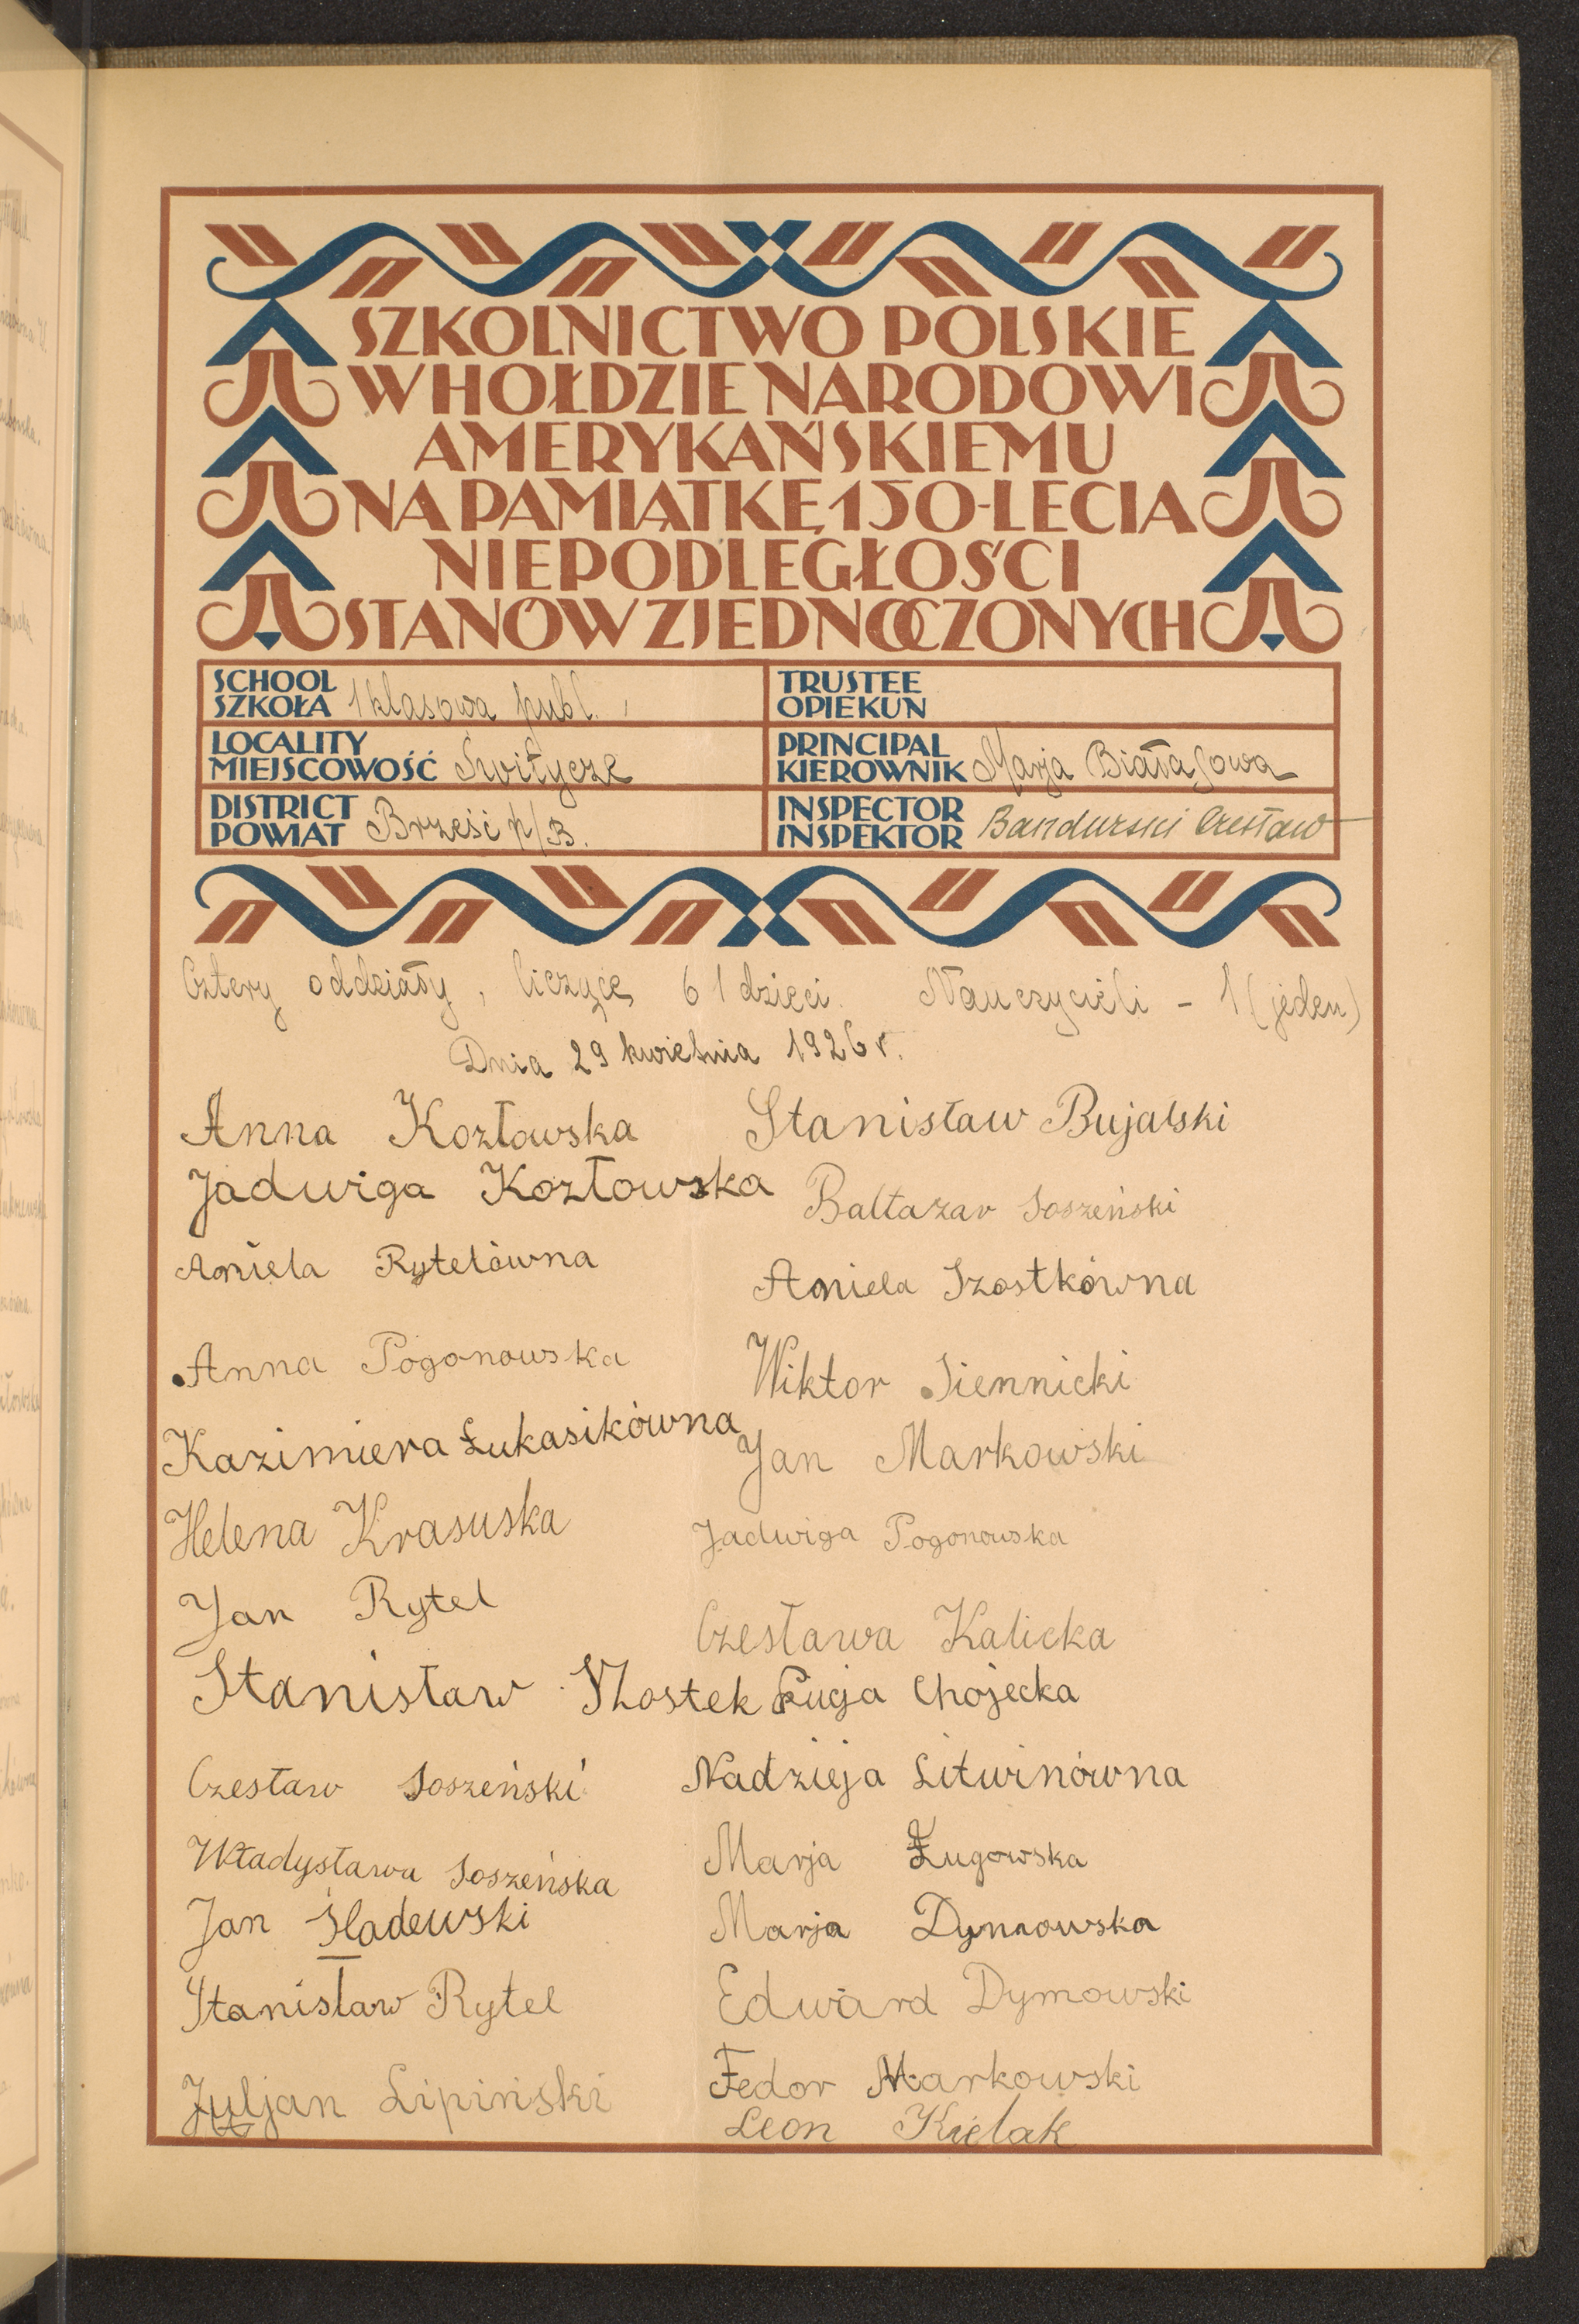 SZKOLNICTWO POLSKIE
W HOŁDZIE NARODOWI
AMERYKAŃSKIEMU
NA PAMIĄTKĘ 150-LECIA
NIEPODLEGŁOŚCI
STANÓW ZJEDNOCZONYCH
SCHOOL
SZKOŁA 1 klasowa publ.
TRUSTEE
OPIEKUN
LOCALITY
MIEJSCOWOŚĆ Switycze
PRINCIPAL
KIEROWNIK Marja Białasowa
DISTRICT
POWIAT Brześć n/B.
INSPECTOR
INSPEKTOR Bandurski Czesław
Cztery oddziały, liczące 61 dzieci. Nauczycieli - 1 (jeden)
Dnia 29 kwietnia 1926 r.
Anna Kozłowska
Jadwiga Kozłowska
Aniela Rytelówna
Anna Pogonowska
Kazimiera Łukasikówna
Helena Krasuska
Jan Rytel
Stanisław Szostek
Czesław Soszeński
Władysława Soszeńska
Jan Śladewski
Stanisław Rytel
Juljan Lipiński
Stanisław Bujalski
Baltazar Soszeński
Aniela Szostkówna
Wiktor Siennicki
Jan Markowski
Jadwiga Pogonowska
Czesława Kalicka
Łucja Chojecka
Nadzieja Litwinówna
Marja Ługowska
Marja Dymowska
Edward Dymowski
Fedor Markowski
Leon Kielak